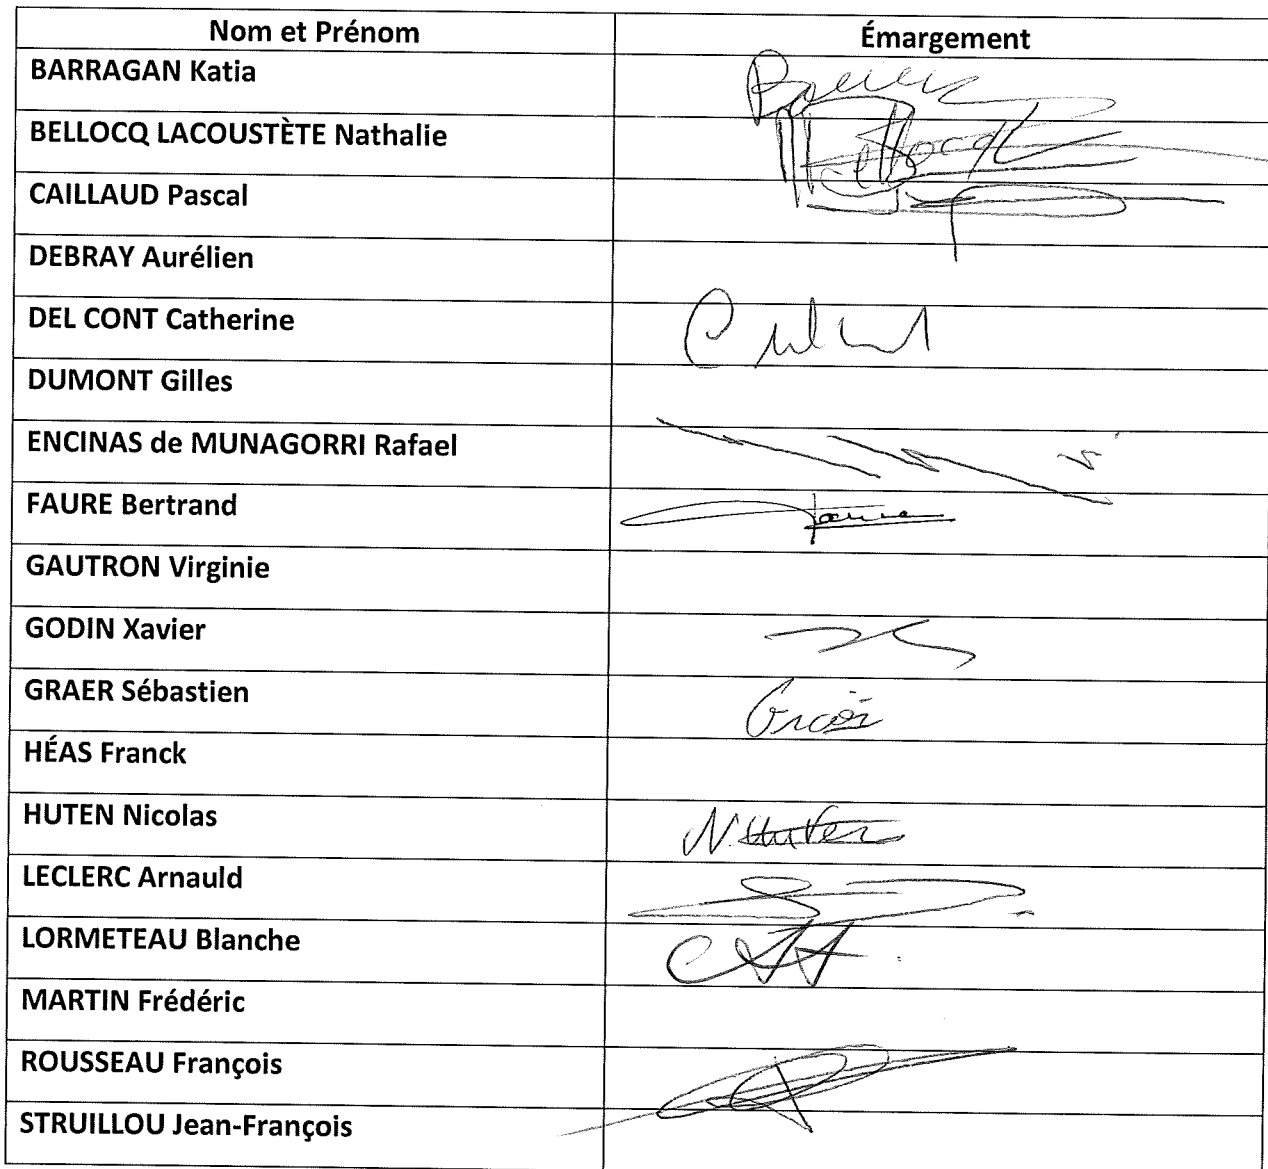 Nom et Prénom Émargement
BARRAGAN Katia
BELLOCQ LACOUSTÈTE Nathalie
CAILLAUD Pascal
DEBRAY Aurélien
DEL CONT Catherine
DUMONT Gilles
ENCINAS de MUNAGORRI Rafael
FAURE Bertrand
GAUTRON Virginie
GODIN Xavier
GRAER Sébastien
HÉAS Franck
HUTEN Nicolas N. Huten
LECLERC Arnauld
LORMETEAU Blanche
MARTIN Frédéric
ROUSSEAU François
STRUILLOU Jean-François